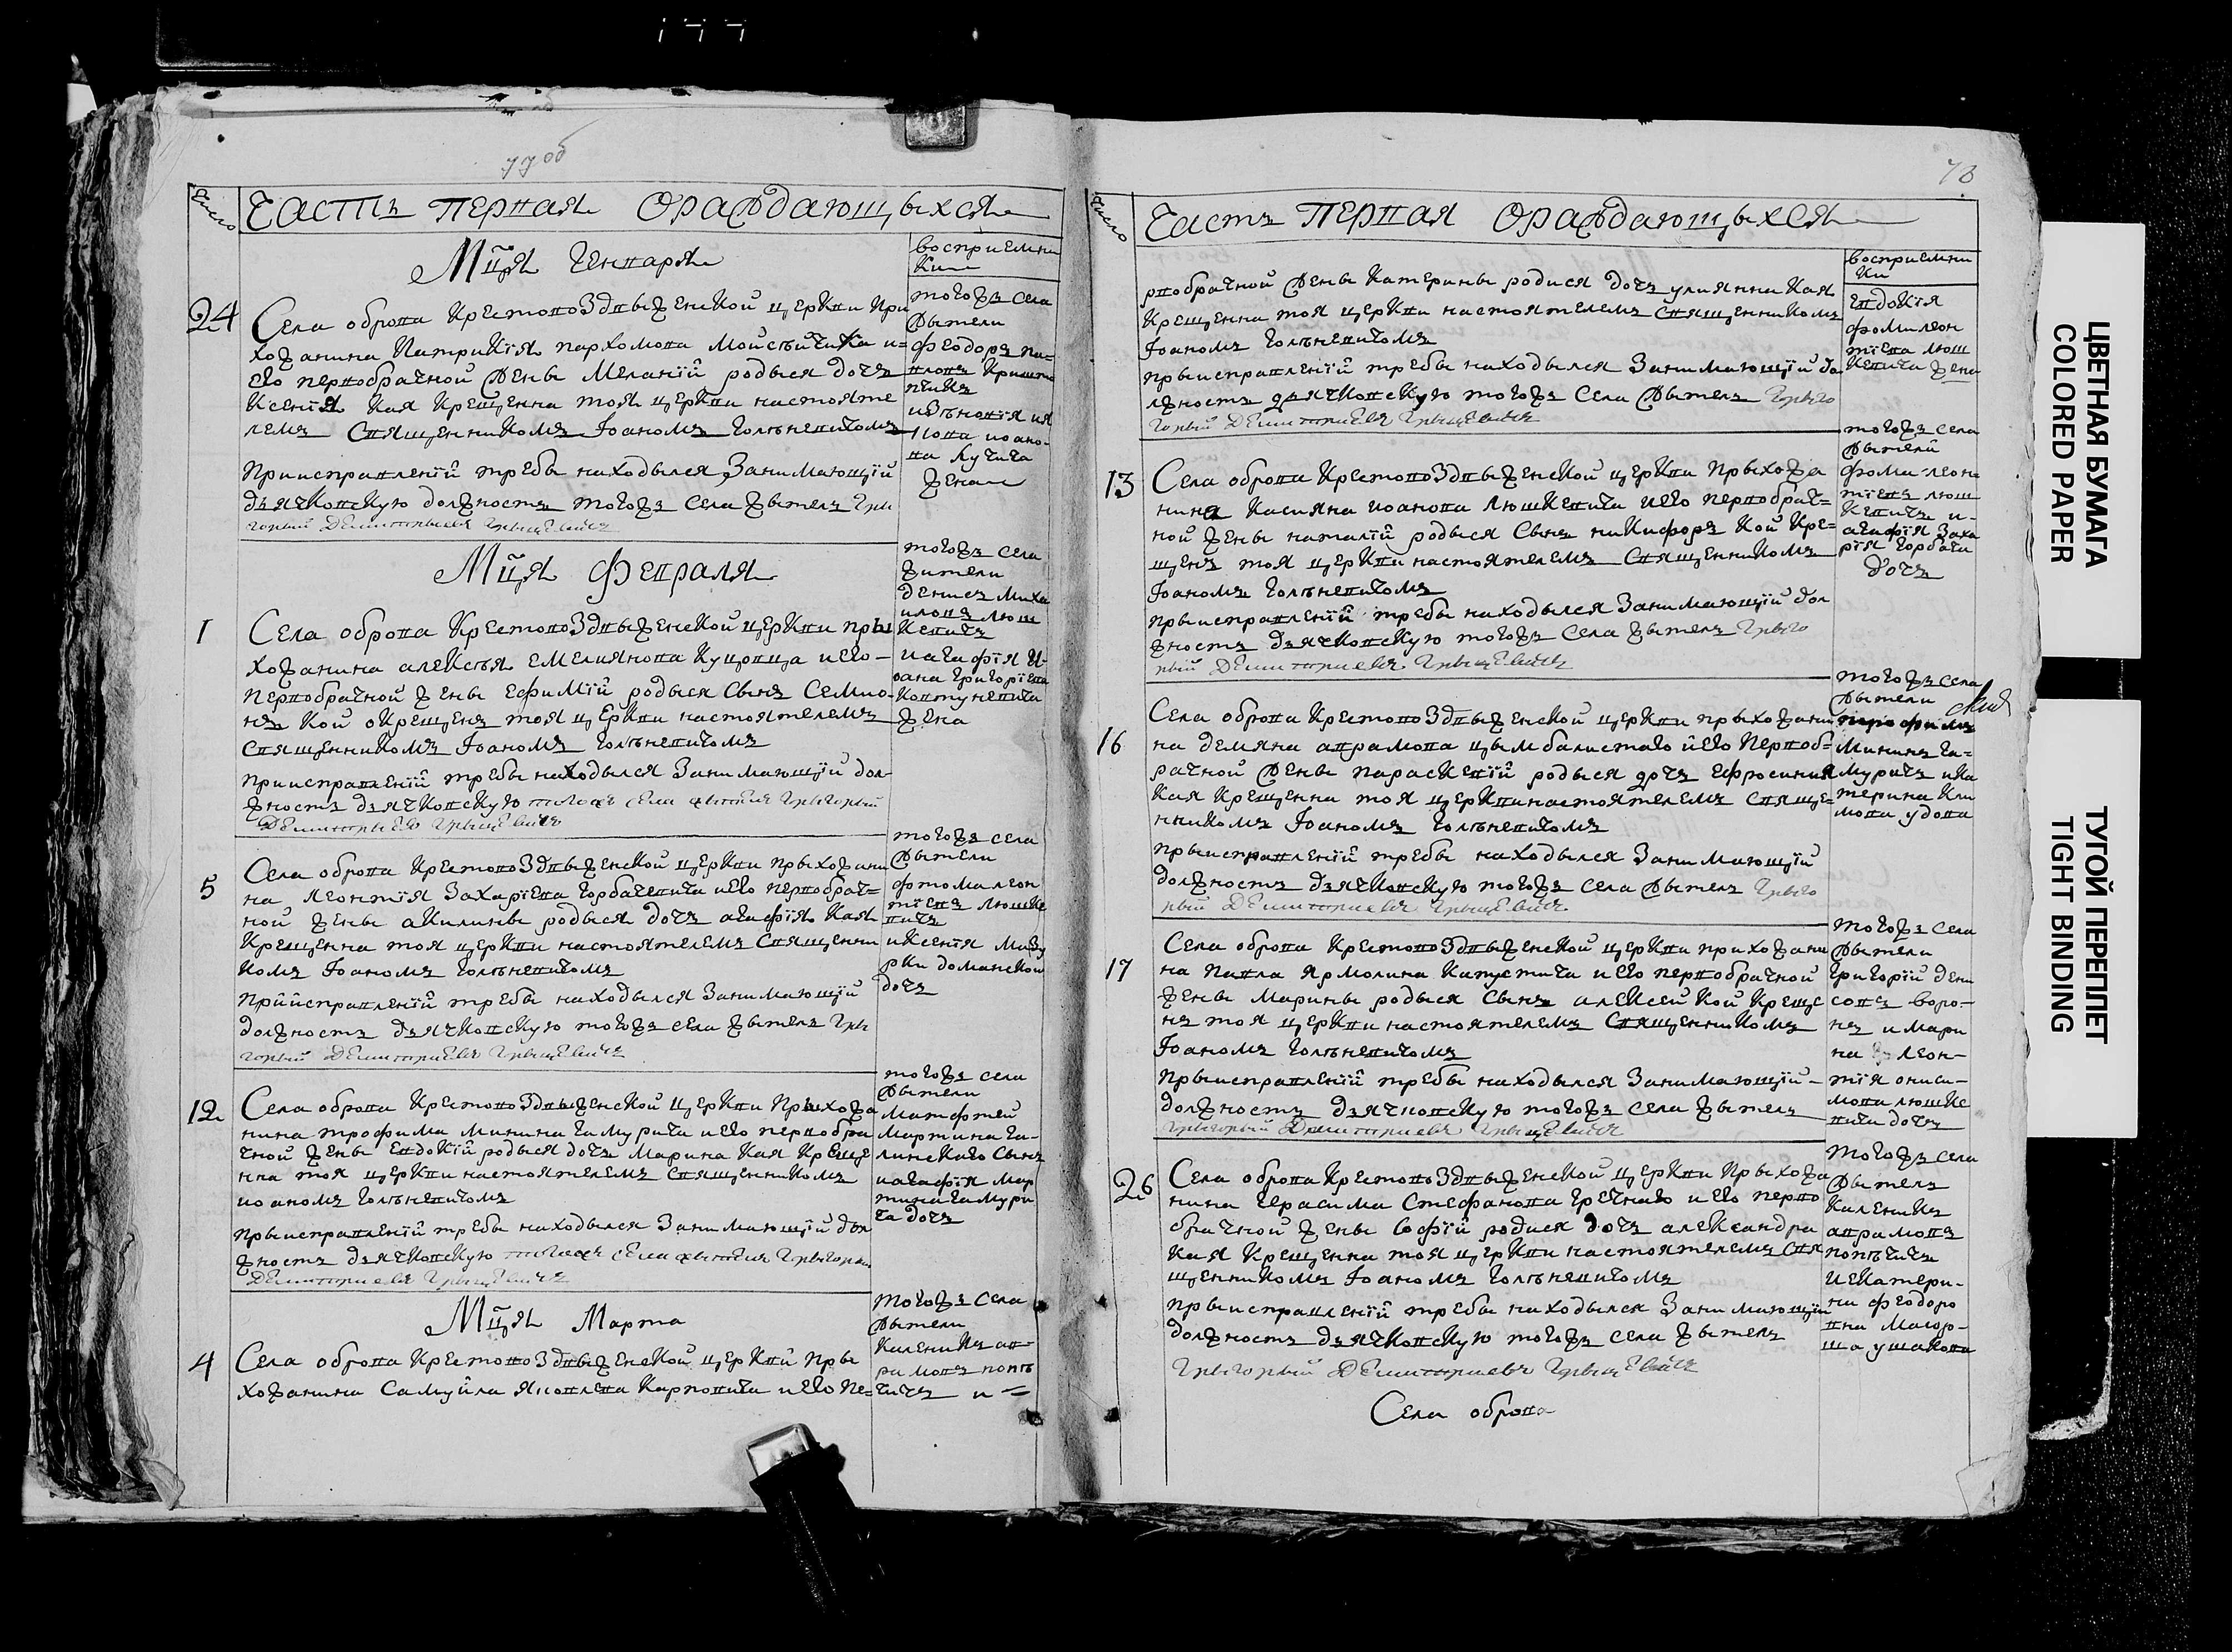 77об
Число
Часть первая ораждающыхся
Мця Генваря
восприемни
ки
24
Села оброва крестовоздвыженской церкви при
хожанина Патрикія пархомова мойсѣичика и=
его первобрачной жены Меланій родыся дочъ
Ксенія кая крещенна тоя церкви настояте
лемъ священникомъ Іоаномъ Голѣневичомъ
Приисправленій требы находылся занимающій
дьячковскую должность тогожъ села житель Гры
горый Демитрыевъ Грыцевичъ
тогожъ села
жытели
феодоръ па=
вловъ
Мця Февраля
1
Села оброва крестовоздвыженской церкви пры
хожанина алексѣя емелиянова куцовца иего
первобрачной жены ефимій родыся сынъ Семио
нъ кой окрещенъ тоя церкви настоятелемъ
священникомъ Іоаномъ Голѣневичомъ
приисправленій требы находылся занимающій дол
жность дьячковскую тогожъ села жытель Грыгорый
Демитрыевъ Грыцевичъ
тогожъ села
жители
денисъ миха
иловъ люш
кевичъ
иагафія И-
вана григоріева
ковтуневича
жена
5
Села оброва крестовоздвыженской церкви прыхожани
на Леонтія Захаріева горбачевича иего первобрач=
ной жены акилины родыся дочъ агафія кая
крещенна тоя церкви настоятелемъ священни
комъ Іоаномъ Голѣневичомъ
Прийисправленій требы находылся занимающій
должность дьячковскую тогожъ села жытель Гры
горый Демитриевъ Грыцевичъ
тогожъ села
жытели
фтома леон
тіевъ люшке
вичъ
иксенія мазу
рки доманской
дочъ
12
Села оброва крестовоздвыженской церкви прыхожа
нина трофима минина гамурича иего первобра
чной жены евдокій родыся дочъ марина кая креще
нна тоя церкви настоятелемъ священникомъ
иоаномъ Голѣневичомъ
прыисправленій требы находылся занимающій дол
жность дьячковскую тогожъ села жытель Грыгорый
Демитриевъ Грыцевичъ
тогожъ села
жытели
матфтей
мартина га-
линского сынъ
иагафія мар
тина гамури
ча дочъ
Мця Марта
4
Села оброва крестовоздвыженской церквй пры
хожанина Самуйла яковлева карповича иего пе=
тогожъ села
жытели
каленикъ ав-
рамовъ повѣ
тичъ и
78
Число
Часть первая ораждающыхся
восприемни
ки
рвобрачной жены катерины родися дочъ улиянна кая
крещенна тоя церкви настоятелемъ священникомъ
Іоаномъ Голѣневичомъ
прыисправленій требы находылся занимающій до
лжность дьячковскую тогожъ села жытель Грыго
горый Демитриевъ Грыцевичъ
евдокія
фоми леон
тіева люш
кевича жена
13
Села оброва крестовоздвыженской церкви прыхожа
нина касияна иоанова люшкевича иего первобрач=
ной жены наталій родыся сынъ никифоръ кой кре=
щенъ тоя церкви настоятелемъ священникомъ
Іоаномъ Голѣневичомъ
прыисправленій требы находылся занимающій дол
жность дьячковскую тогожъ села жытель Грыго
рый Демитриевъ Грыцевичъ
тогожъ села
жытели
фома леон
тіевъ люш
кевичъ и-
агафія заха
рія горбача
дочъ
16
Села оброва крестовоздвыженской церкви прыхожани
на демяна аврамова цымбалистаго ійего первоб=
рачной жены параскевій родыся дочъ ефросиния
кая крещенна тоя церкви настоятелемъ свяще=
нникомъ Іоаномъ Голѣневичомъ
прыисправленій требы находылся занимающій
должность дьячковскую тогожъ села жытель Грыго
рый Демитриевъ Грыцевичъ
тогожъ села
жытели
трофимъ
мининъ га-
муричъ ика
терина кли
мова удова
17
Села оброва крестовоздвыженской церкви прихожани
на павла ярмолина капустича иего первобрачной
жены марины родыся сынъ алексей кой креще
нъ тоя церкви настоятелемъ священникомъ
Іоаномъ Голѣневичомъ
прыисправленій требы находылся занимающій
должность дьячковскую тогожъ села жытель
Грыгорый Демитриевъ Грыцевичъ
тогожъ села
жытели
григорій дени
совъ воро-
нъ и мари
на леон-
тія ониси-
мова люшке
вича дочъ
26
Села оброва крестовоздвыженской церкви прыхожа
нина герасима стефанова гречнаго иего перво
брачной жены софій родися дочъ александра
кая крещенна тоя церкви настоятелемъ свя
щенникомъ Іоаномъ Голѣневичомъ
прыисправленій требы находылся занимающій
должность дьячковскую тогожъ села жытель
Грыгорый Демитриевъ Грыцевичъ
тогожъ села
жытель
каленикъ
аврамовъ
повѣтичъ
иекатери-
на феодоро
вна
Села оброва
ЦВЕТНАЯ БУМАГА
COLORED PAPER
ТУГОЙ ПЕРЕПЛЕТ
TIGHT BINDING